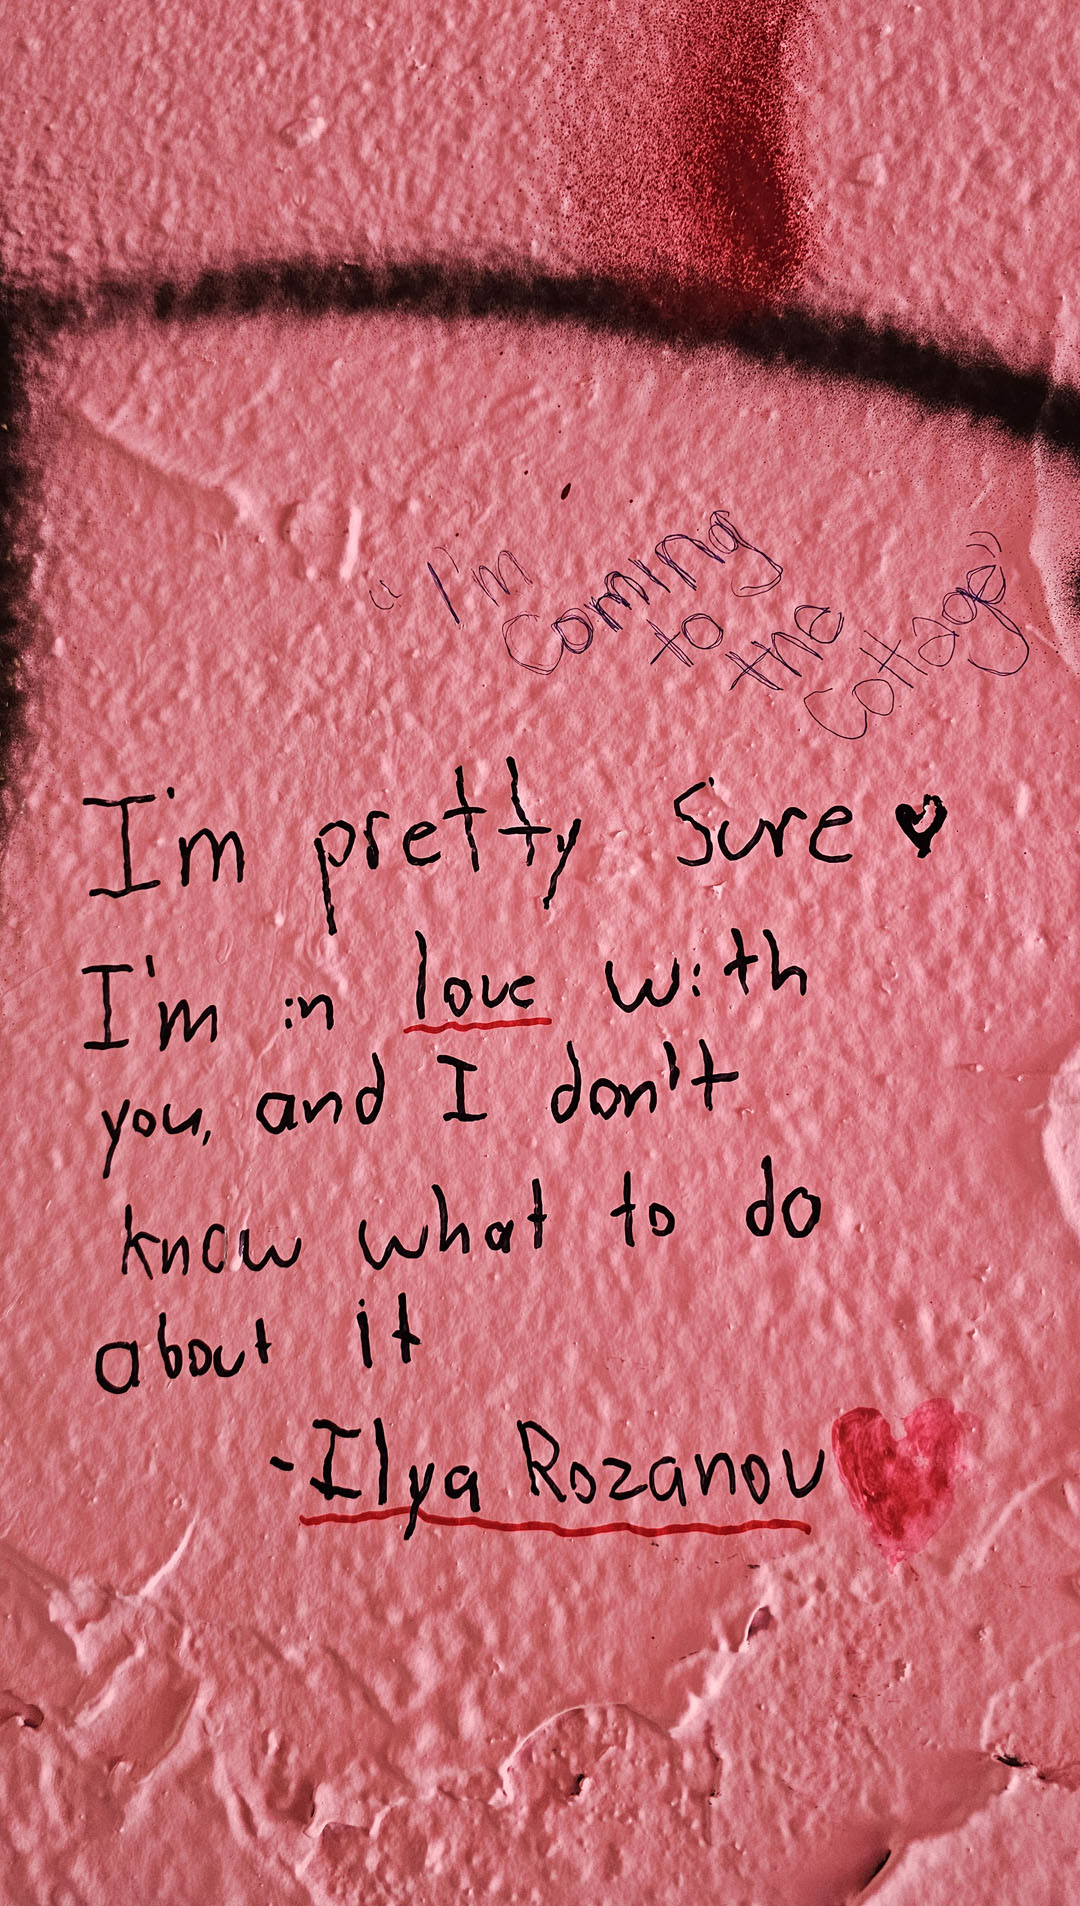 "I'm coming to the cottage"
I'm pretty sure
I'm in love with
you, and I don't
know what to do
about it
-Ilya Rozanov